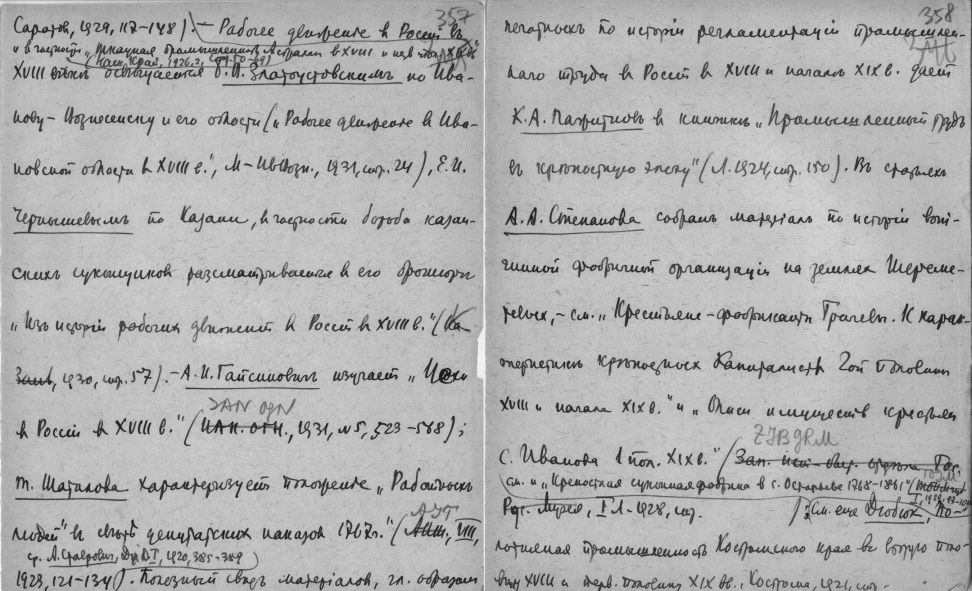 357
Саратов, 1929, 117-148). - Рабочее движение в Россiи в
и в частности „Ткацкая промышленность Астрахан в XVIII и нач. XIX в."
(Наш Край, 1926, 2, стр. 50-69)
XVIII вѣкѣ освѣщается П. Златоустовскимъ по Ива-
нову-Вознесенску и его области („Рабочее движение в Ива-
новской области в XVIII в.", М-ИвВозн., 1931, стр. 24), Е.И.
Чернышевымъ по Казани, в частности борьба казан-
скихъ суконщиков разсматривается в его брошюрѣ
„Изъ исторiи рабочих движенiй в Россiи в XVIII в." (Ка-
зань, 1930, стр. 57). - А.И. Гайсиновичъ изучает „Цехи
ZAN OGN
в Россiи в XVIII в." (ИАН. ОГН., 1931, №5, 523-568);
т. Шатилова характеризует положение „Работныхъ
людей" в свѣтѣ депутатских наказов 1767 г." (VIII,
ср. А. Ставрович, I, 1920, 385-389
1923, 121-134). Полезный свод матерiалов, гл. образом
358
печатныхъ по исторiи регламентацiи промышлен-
наго труда в Россiи в XVIII и началѣ XIX в. дает
К.А. Пажитнов в книжкѣ „Промышленный трудъ
въ крѣпостную эпоху" (Л. 1924, стр. 150). Въ статьяхъ
А.А. Степанова собранъ матерiалъ по исторiи вотчи-
чинной фабричной организацiи на землях Шереме-
тевых, - см. „Крестьяне-фабриканты Грачевы. К харак-
теристикѣ крѣпостных капиталистовъ 2ой половины
XVIII и начала XIX в." и „Описи имуществ крестьян
ZIBGRM
с. Иванова 1 пол. XIX в." (Зап. ист.-быт. отдѣла Гос.
см. и „Крепостная суконная фабрика в с. Остафьеве 1768-1861"
Рус. Музея, I Л-1928, стр. ); См. еще Дюбюк, По-
лотняная промышленность Костромского края во вторую поло-
вину XVIII и перв. половину XIX вв., Кострома, 1921, стр.